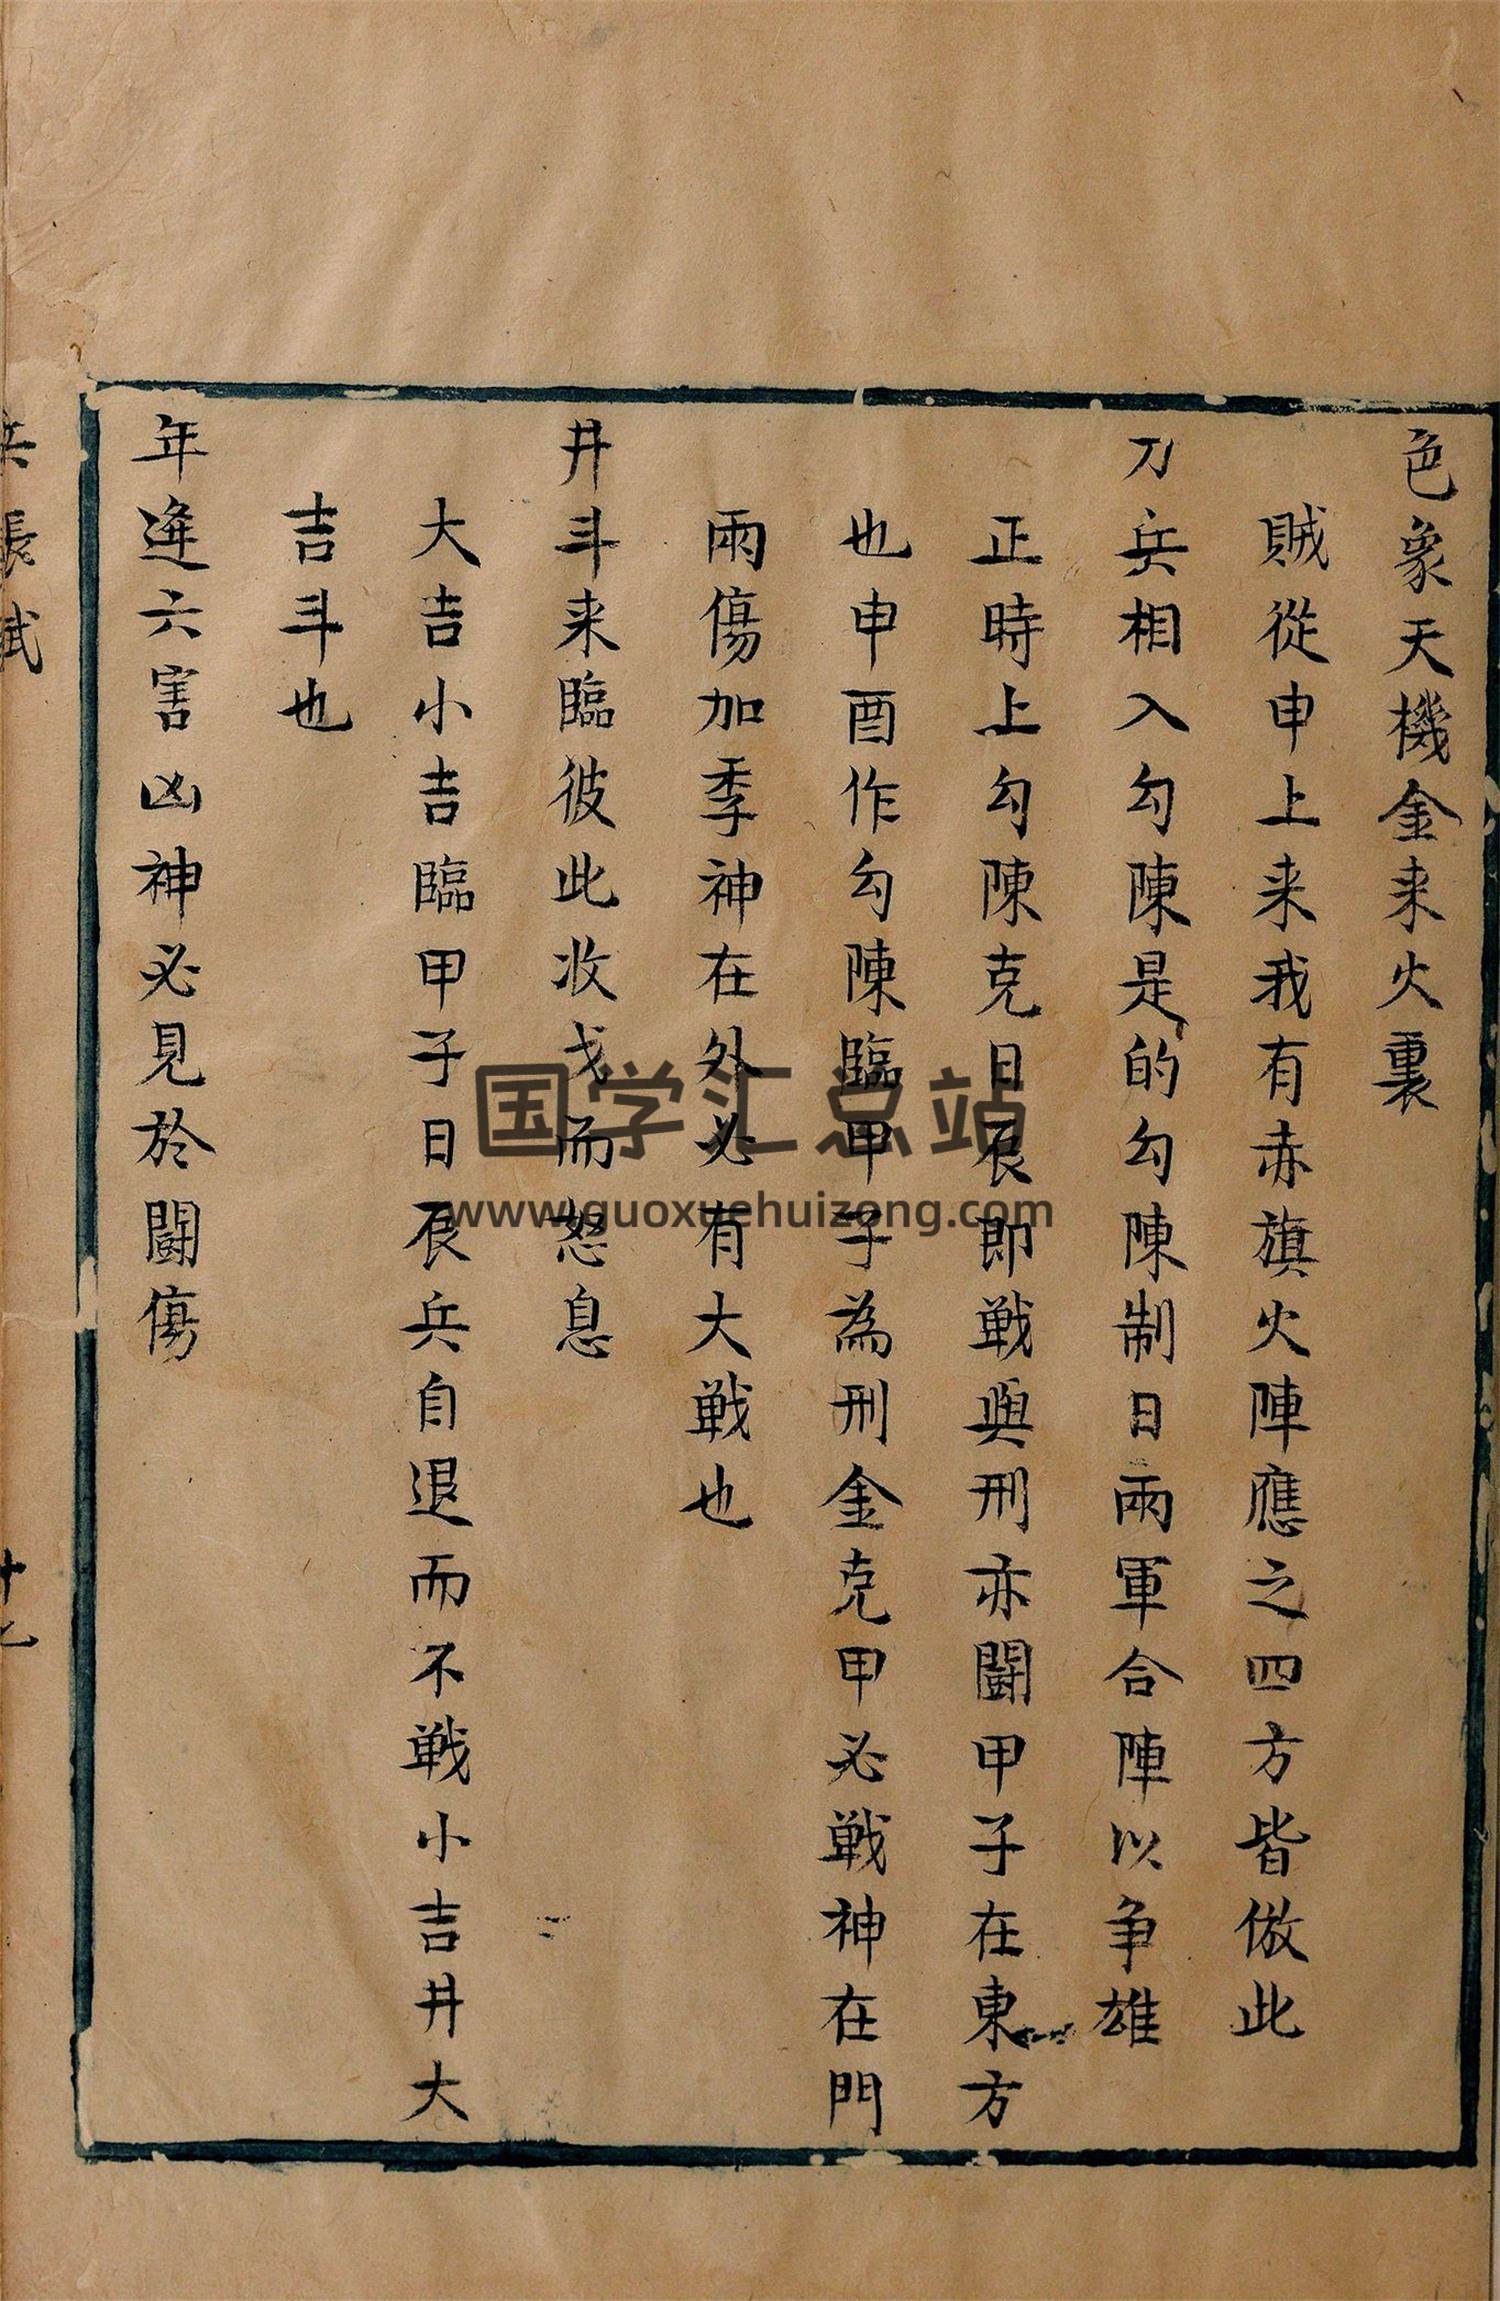 色象天機金来火裏
賊從申上来我有赤旗火陣應之四方皆倣此
刀兵相入勾陳是的勾陳制日兩軍合陣以争雄
正時上勾陳克日辰即戦與刑亦闘甲子在東方
也申酉作勾陳臨甲子為刑金克甲必戦神在門
兩傷加季神在外必有大戦也
井斗来臨彼此收戈而怒息
大吉小吉臨甲子日辰兵自退而不戦小吉井大
吉斗也
年逄六害凶神必見於闘傷
兵帳賦
十七
国学汇总站
www.guoxuehuizong.com